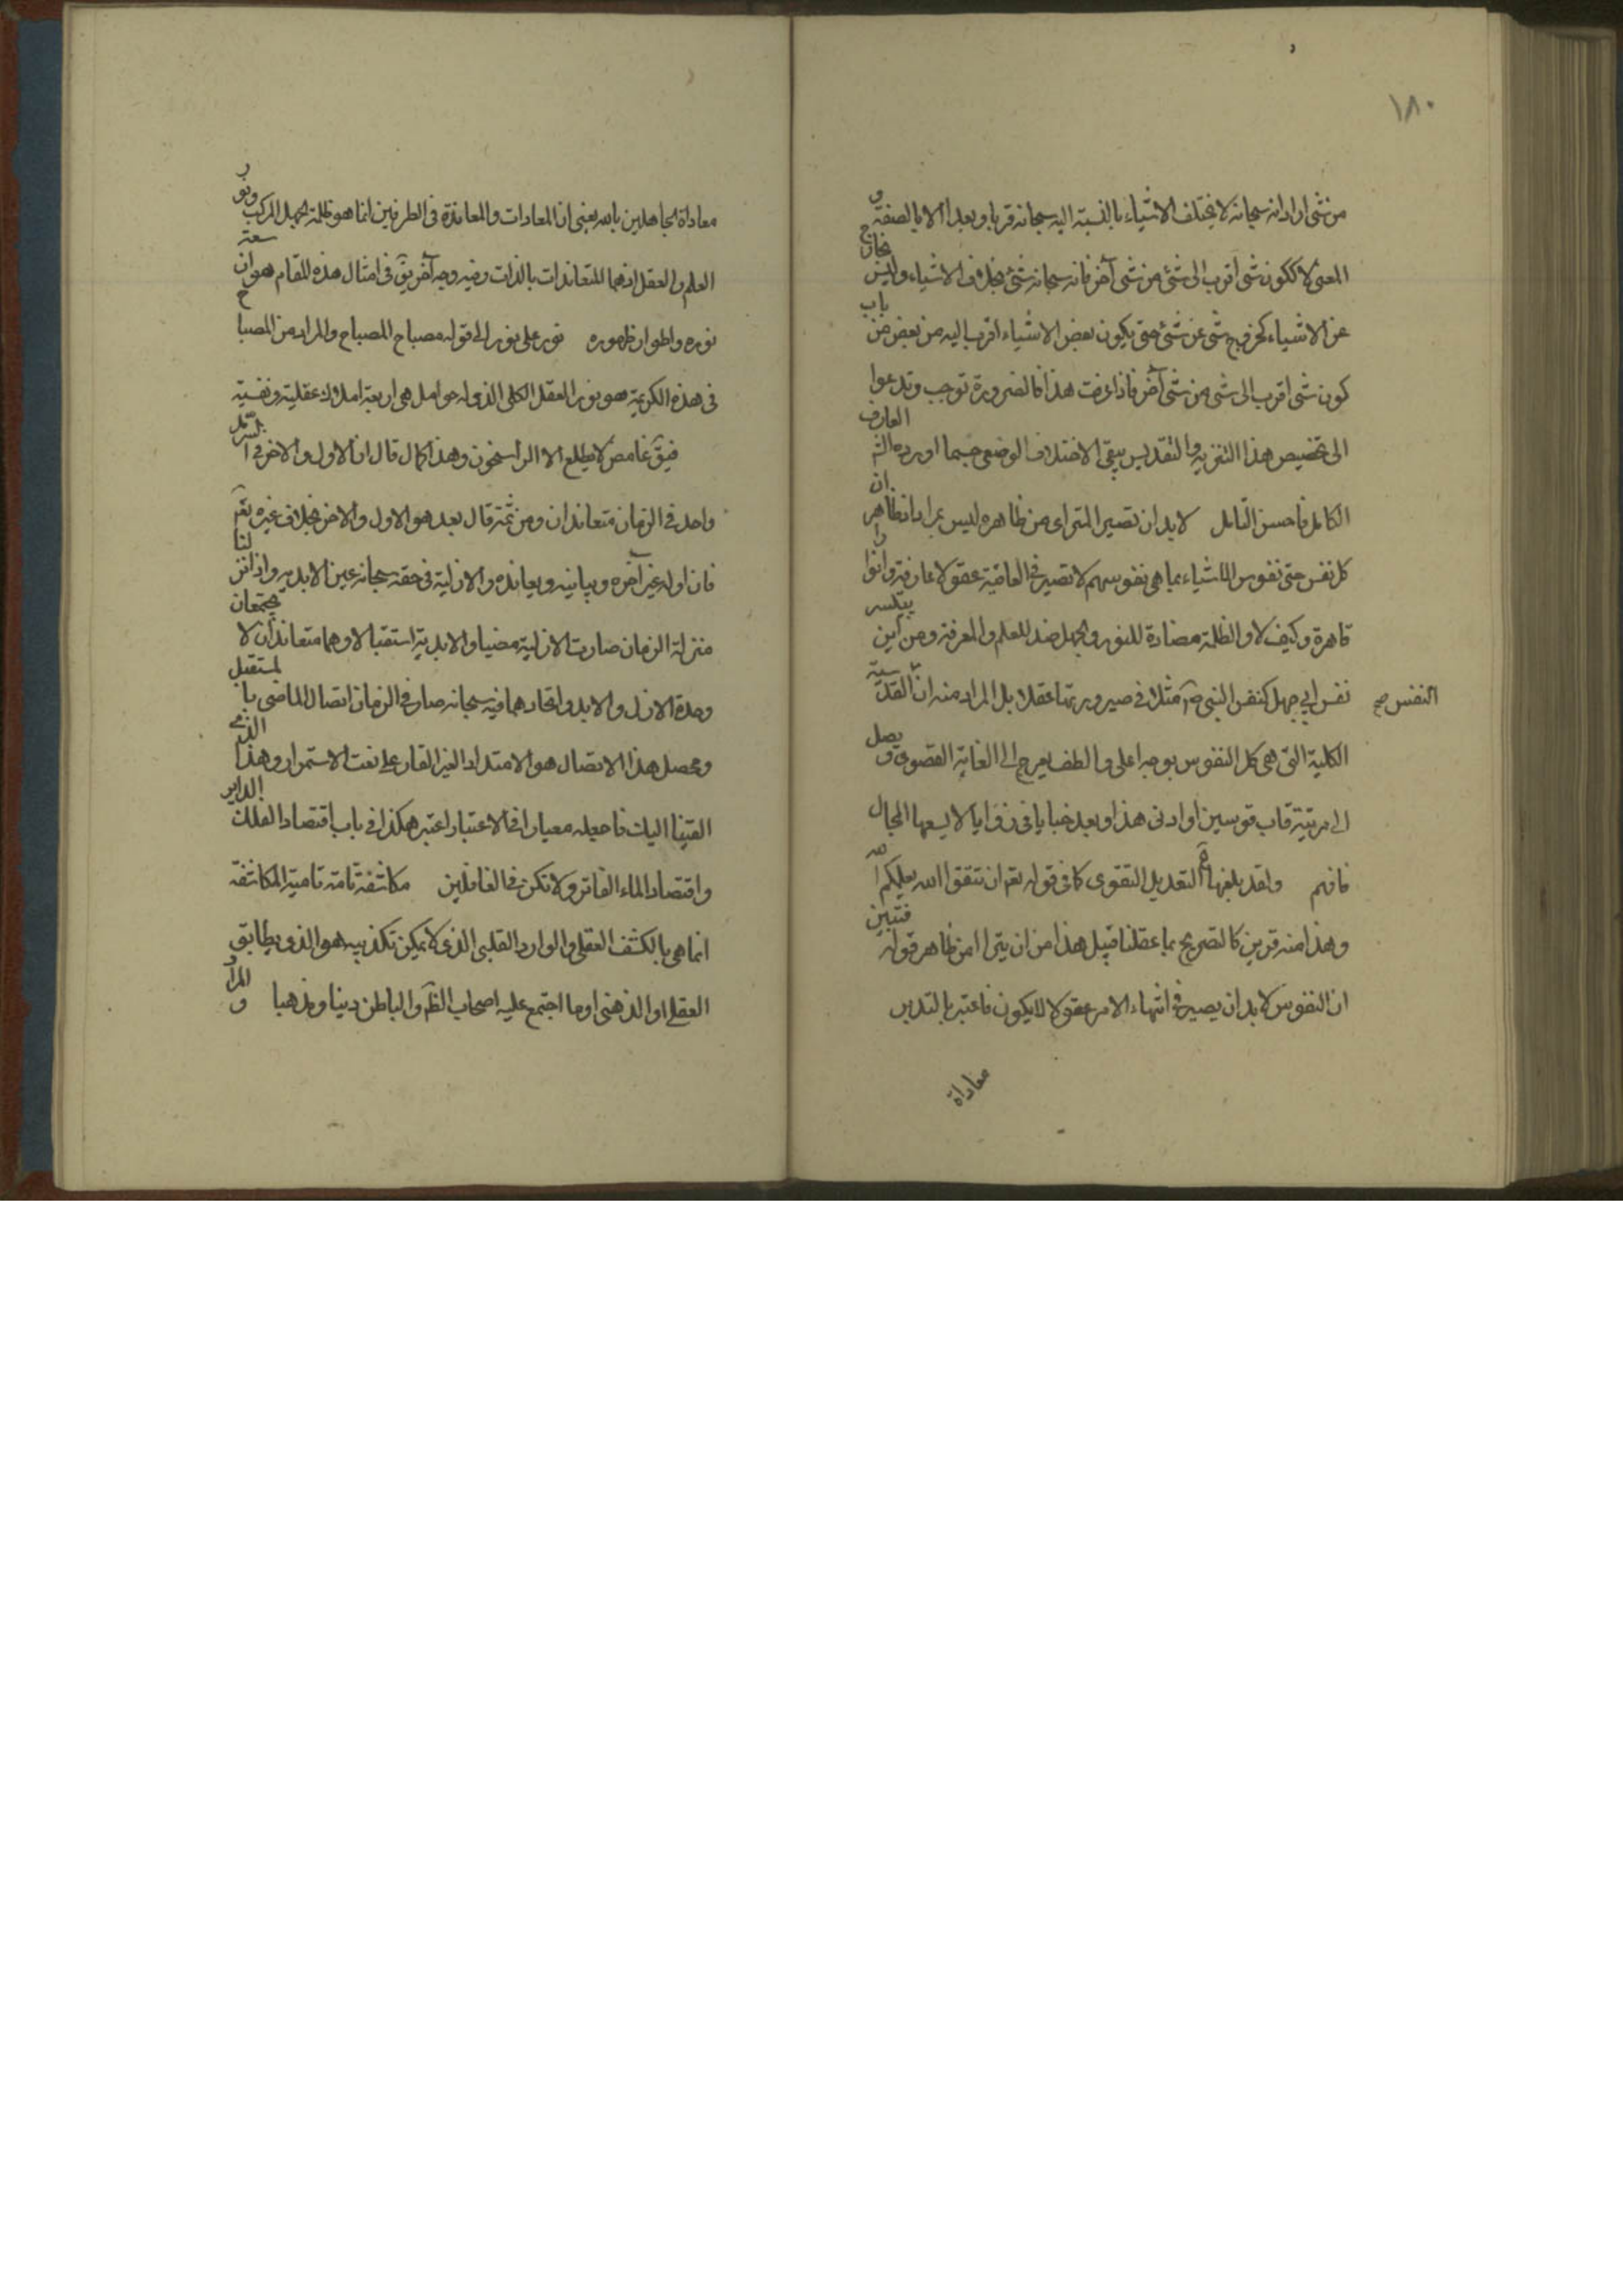 ١٨٠
من شئ اراد انه سبحانه لا يختلف الاشياء بالنسبة اليه سبحانه قربا وبعدا الا بالصفة و
المعنى لا ككون شئ اقرب الى شئ من شئ آخر فانه سبحانه شئ بخلاف الاشياء وليس بخارج
عن الاشياء كخروج شئ عن شئ حتى يكون بعض الاشياء اقرب اليه من بعض من باب
كون شئ اقرب الى شئ من شئ آخر فاذا عرفت هذا فالضرورة توجب وتدعوا
الى تخصيص هذا التنزيه والتقديس بنفى الاختلاف الوضعى حسبما اورده العارف
الكامل فاحسن التامل لا بد ان تصير المترائ من ظاهره ليس بمراد اذ ظاهر ان
كل نفس حتى نفوس الاشياء بما هى نفوسهم لا تصير فى العاقبة عقولا عارفة وانوارا
قاهرة وكيف لا والظلمة مضادة للنور والجهل ضد للعلم والمعرفة ومن اين يتيسر
نفس ابى جهل كنفس النبى ص مثلا فى صيرورتها عقلا بل المراد منه ان القدسية
النفس صح
الكلية التى هى كل النفوس بوجه اعلى والطف يعرج الى الغاية القصوى و يصل
الى مرتبة قاب قوسين او ادنى هذا وبعد خبايا فى زوايا لا يسعها المجال
فافهم ولقد بلغ التعديل التقوى كما فى قوله تعم ان تتقوا الله يعلمكم الله
وهذا منه قرين كالتصريح بما عقلنا قبيل هذا من ان يترا امن ظاهر قوله فتبين
ان النفوس لا بد ان يصير فى انتهاء الامر عقولا لا يكون فاعتبر بالتدبر
معاداة
معاداة الجاهلين بالله يعنى ان المعادات والمعاندة فى الطرفين انما هو ظلمة الجهل المركب ونور
العلم والعقل اذ هما المتعاندات بالذات وفيه وجه آخر يق فى امثال هذه المقام هو ان سعة
نوره واطوار ظهوره نور على نور الى قوله مصباح المصباح والمراد من المصباح
فى هذه الكريمة هو نور العقل الكلى الذى له حوامل هى اربعة املاك عقلية ونفسية
فيق غامض لا يطلع الا الراسخون وهذا كمال قال ان الاول والاخر فى
واحد فى الزمان متعاندان ومن ثمة قال بعد هو الاول والاخر بخلاف غيره تعم
فان اوله غير آخره ويباينه ويعانده والازلية فى حقه سبحانه عين الابدية واذا انزلنا
منزلة الزمان صارت الازلية مضيا والابدية استقبالا وهما متعاندان لا يجتمعان
وحدة الازل والابد واتحادهما فيه سبحانه صار فى الزمان اتصال الماضى بالمستقبل
ومحصل هذا الاتصال هو الامتداد الغير القار على نعت الاستمرار وهذا الذى
القينا اليك فاجعله معيارا فى الاعتبار اعتبر هكذا فى باب اقتصاد الفلك الداير
واقتصاد الماء الفاتر ولا تكن فى الغافلين مكاشفة تامة تامية المكاشفة
انما هى بالكشف العقلى والوارد القلبى الذى لا يمكن تكذيبه هو الذى يطابق
العقلى او الذهنى او ما اجتمع عليه اصحاب الظم والباطن دينا ومذهبا و المراد